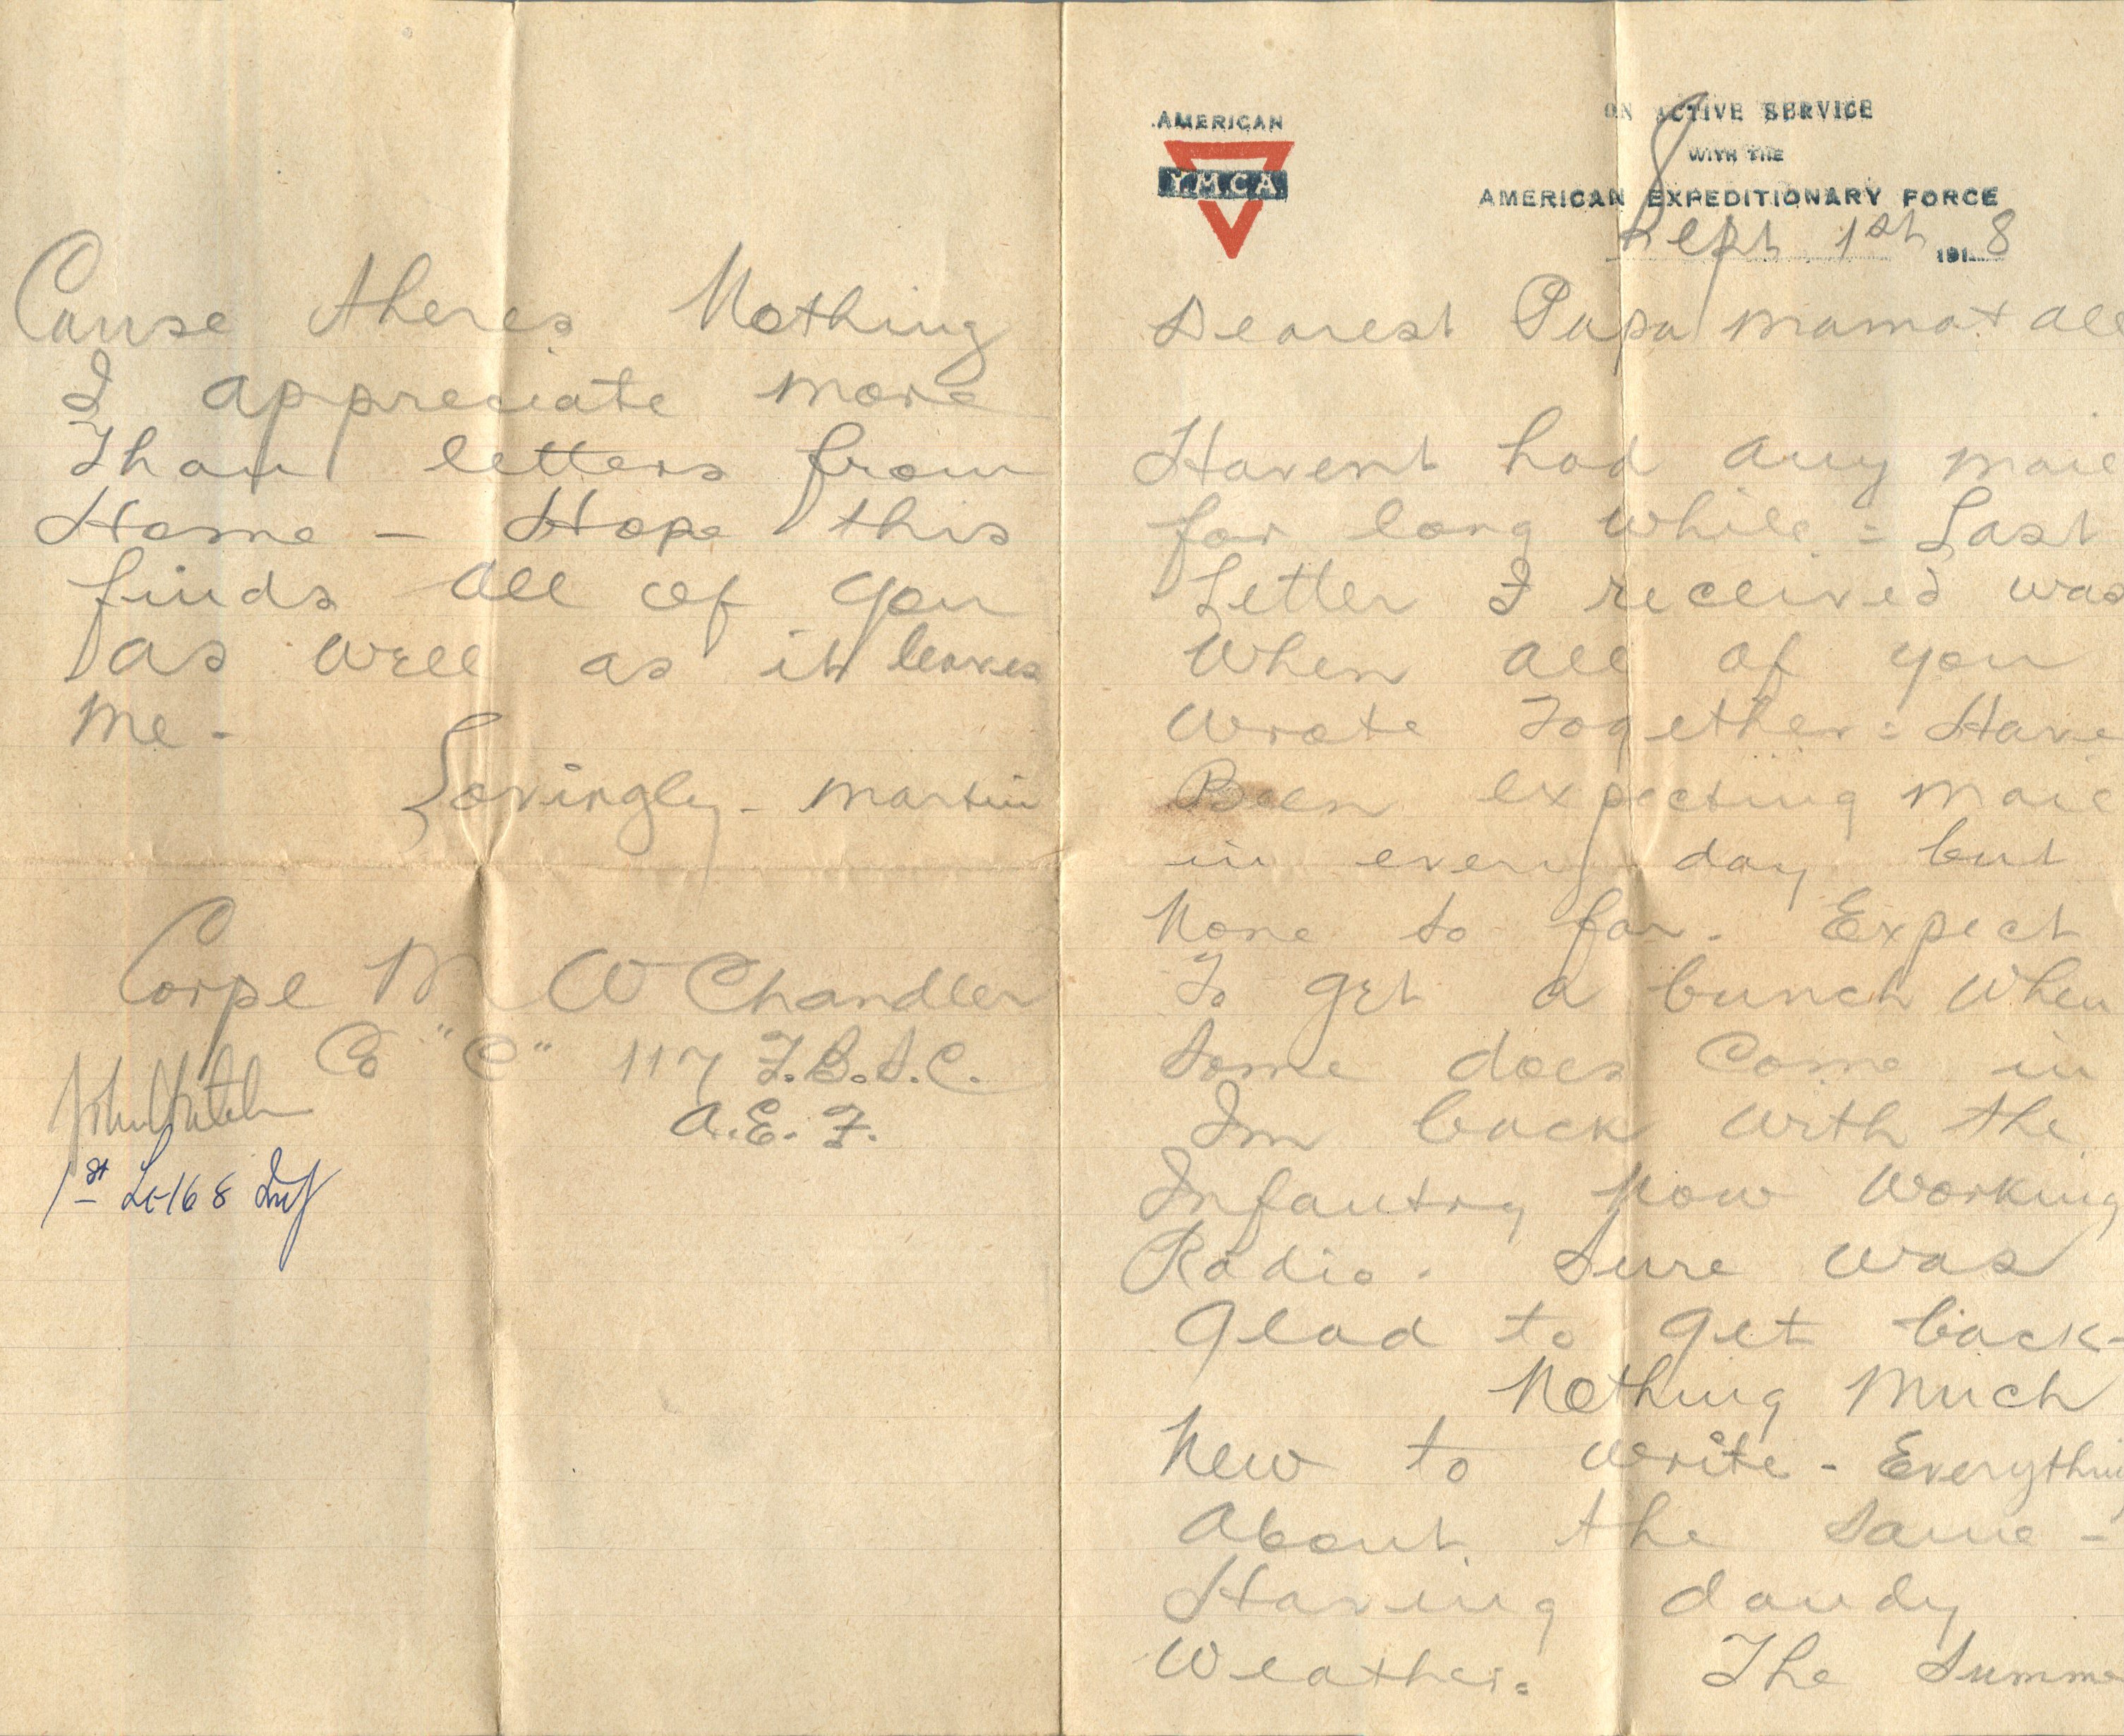 Cause theres Nothing
I appreciate more
Than letters from
Home – Hope this
finds all of you
as well as it leaves
Me -
Lovingly - Martin
Corpl M W Chandler
Co "C" 117 F.B.S.C.
A.E.F.
1st Lt 168 Inf
AMERICAN
Y.M.C.A
ON ACTIVE SERVICE
WITH THE
AMERICAN EXPEDITIONARY FORCE
Sept 1st 1918
Dearest Papa Mama & all
Havent had any mail
for long while = Last
Letter I received was
When all of you
Wrote Together = Have
Been expecting mail
in every day but
None so far. Expect
To get a bunch When
Some does Come in
Im back with the
Infantry Now Working
Radio. Sure was
Glad to get back-
Nothing Much
New to write - Everythin
About the same -
Having dandy
Weather = The Summe